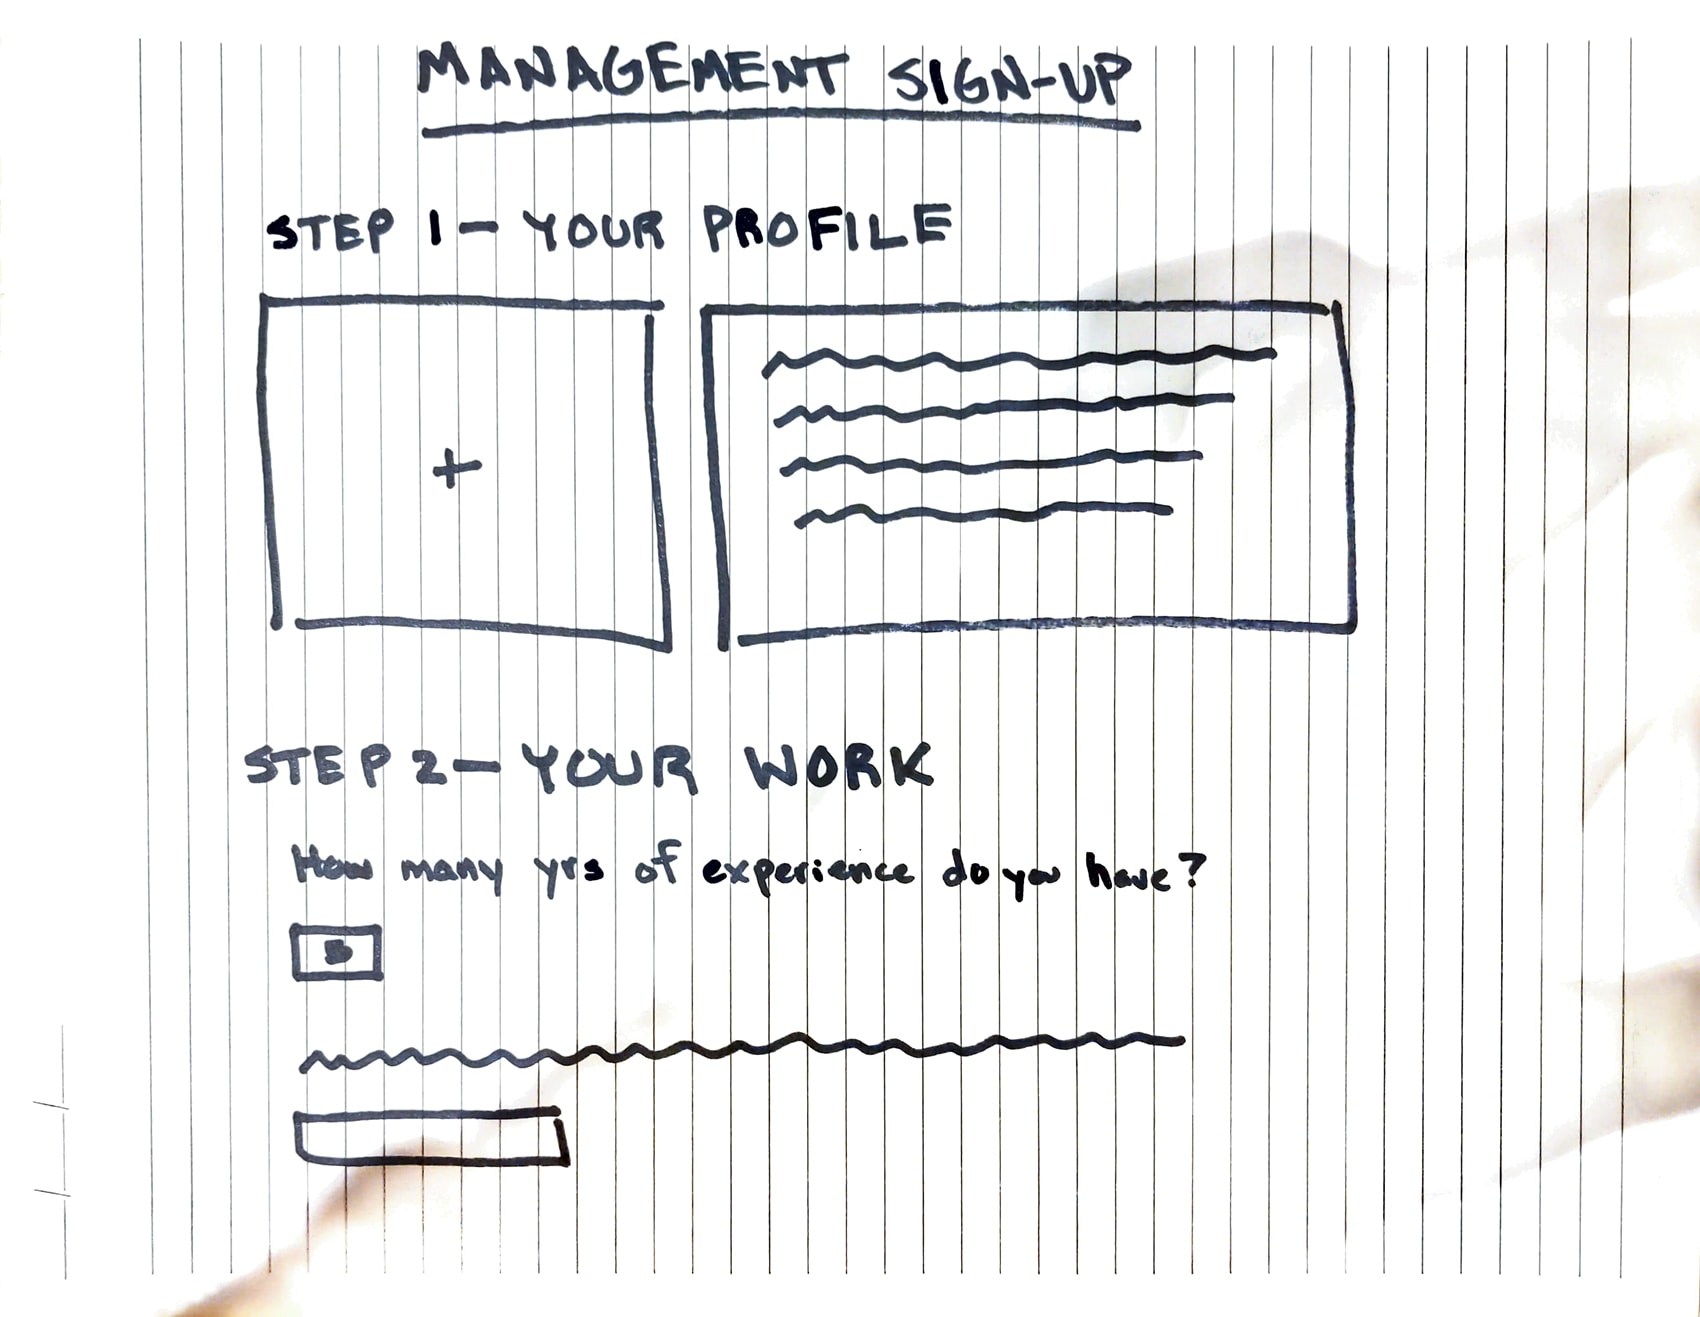 MANAGEMENT SIGN-UP
STEP 1 — YOUR PROFILE
+
STEP 2 — YOUR WORK
How many yrs of experience do you have?